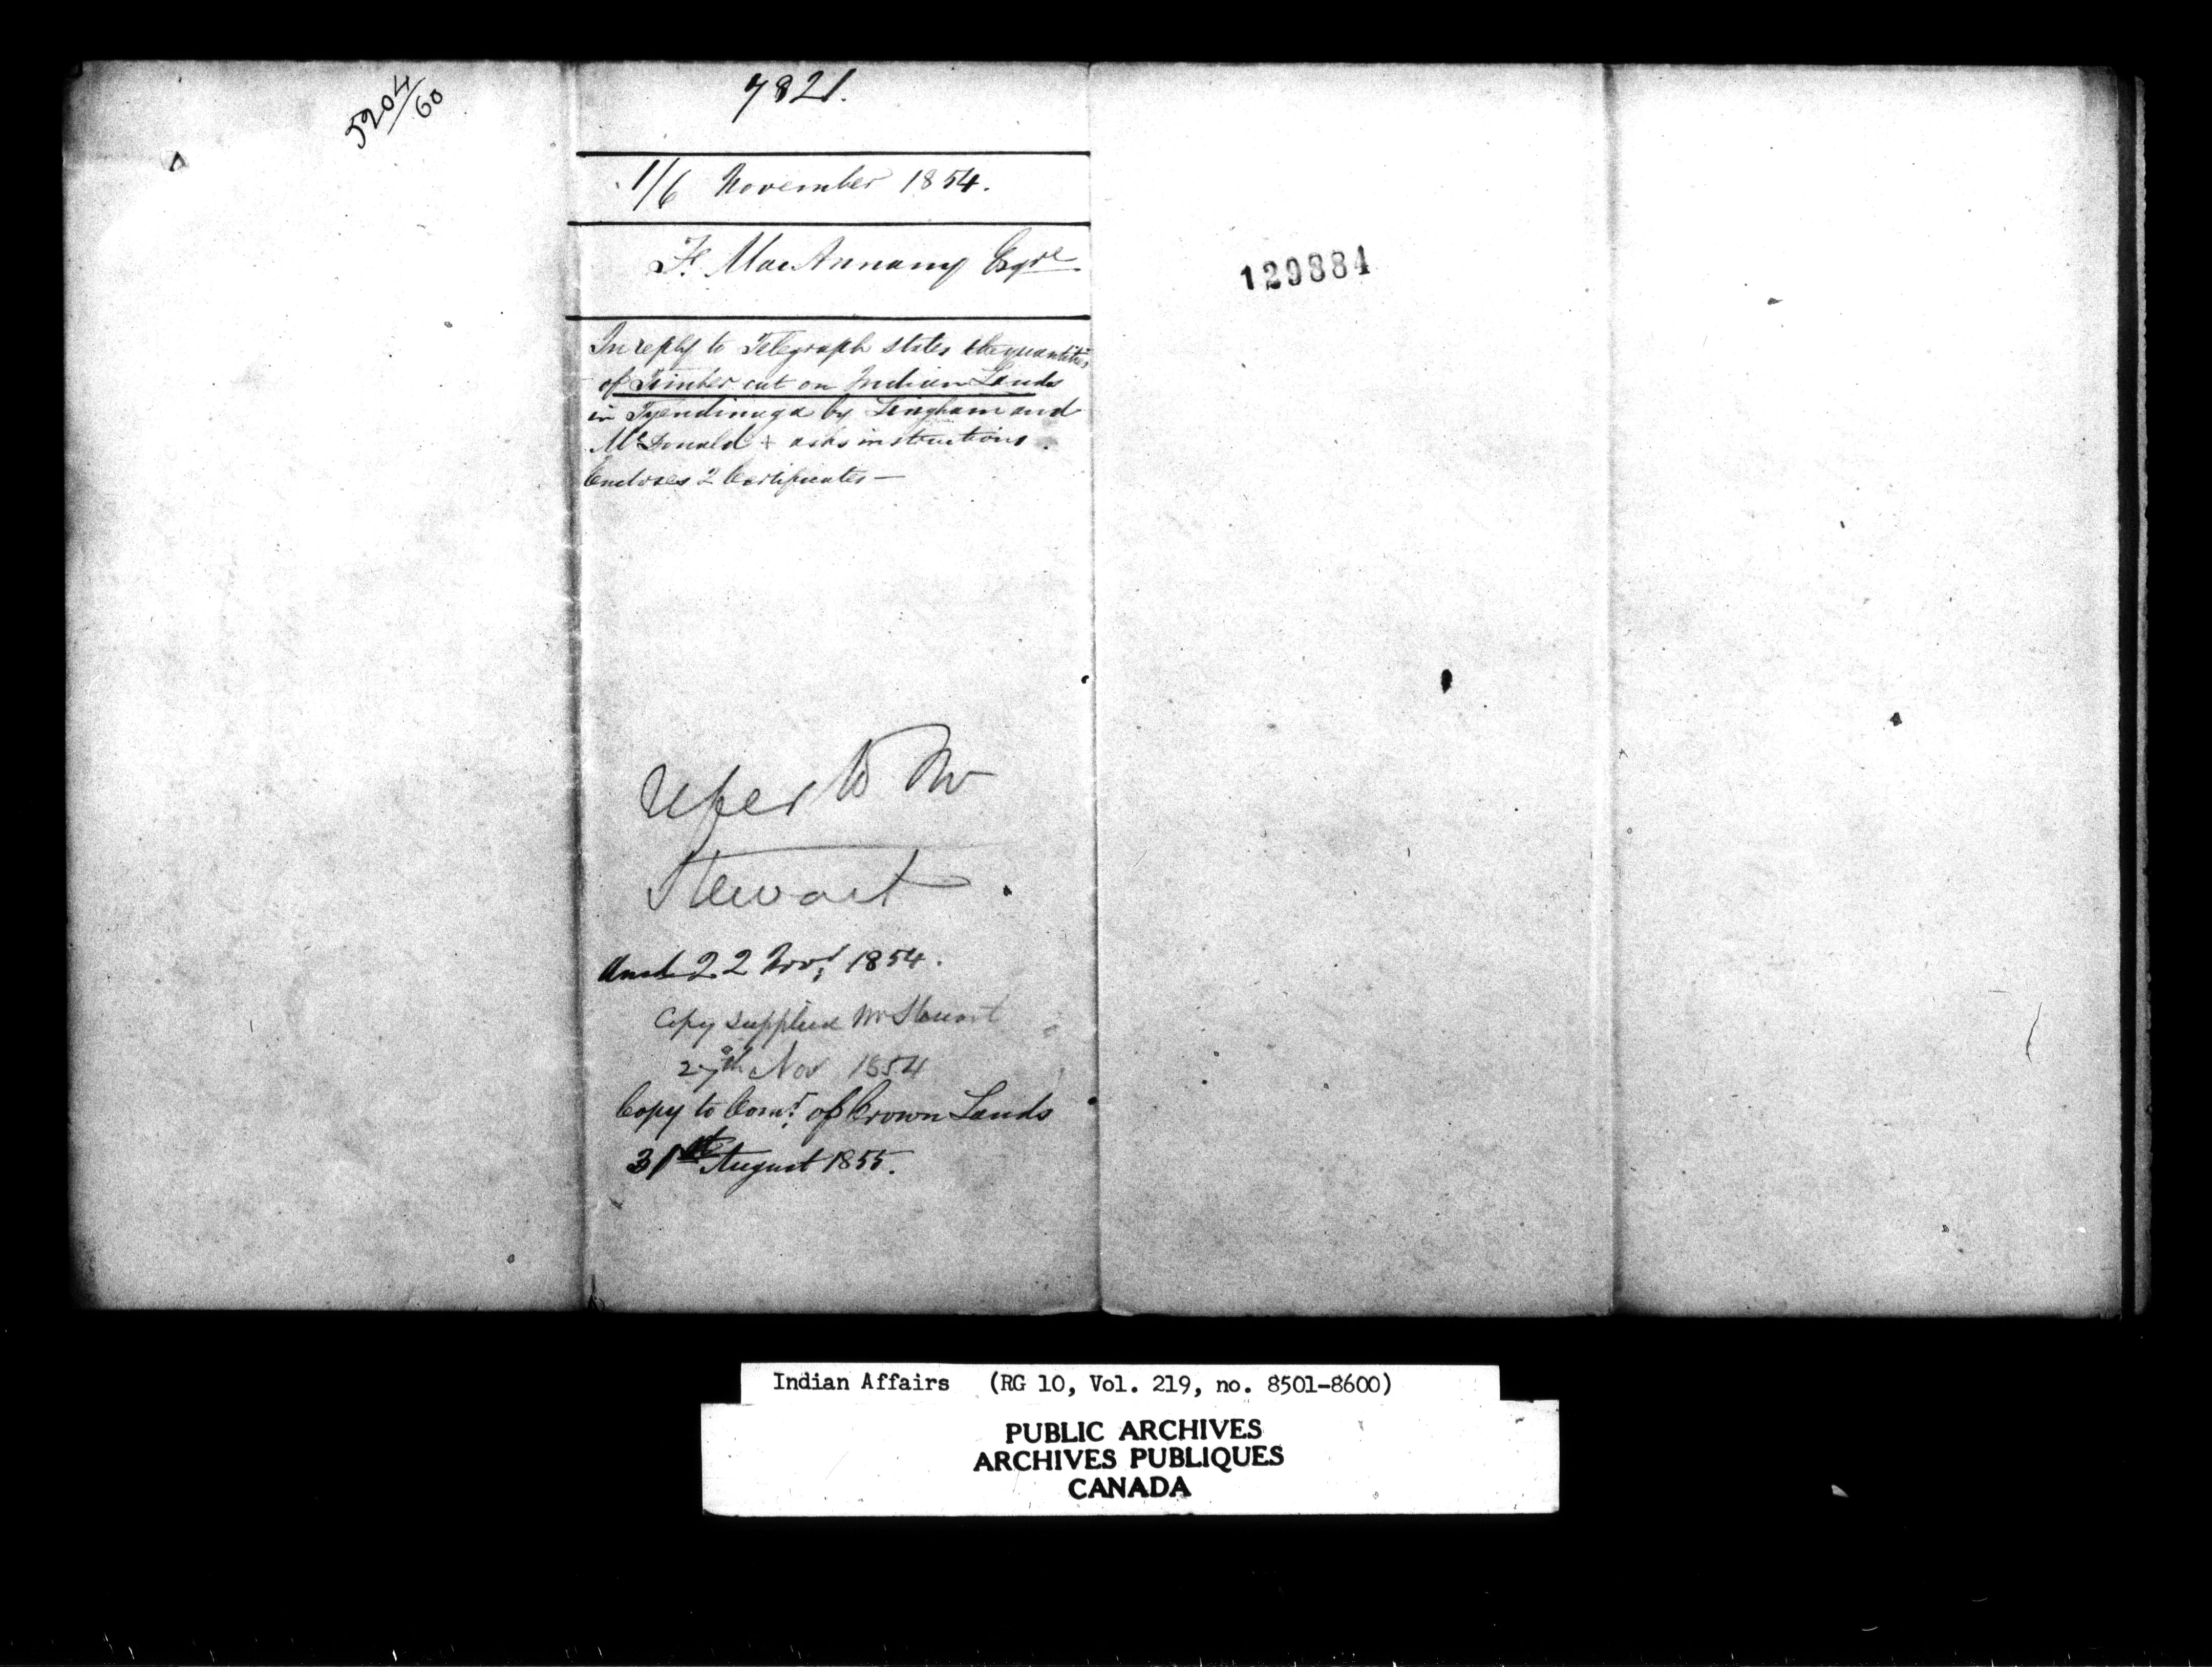 5204/60
7821.
1/6 November 1854.
F. MacAnnany Esqre
In reply to Telegraph states the quantities
of Timber cut on Indian Lands
in Tyendinaga by Lingham and
McDonald & asks instructions.
Encloses 2 Certificates—
Refer to Mr
Stewart.
Ansd 22 Novr 1854.
Copy supplied Mr Stewart
27th Nov 1854
Copy to Comr. of Crown Lands
31st August 1855.
129884
Indian Affairs (RG 10, Vol. 219, no. 8501-8600)
PUBLIC ARCHIVES
ARCHIVES PUBLIQUES
CANADA